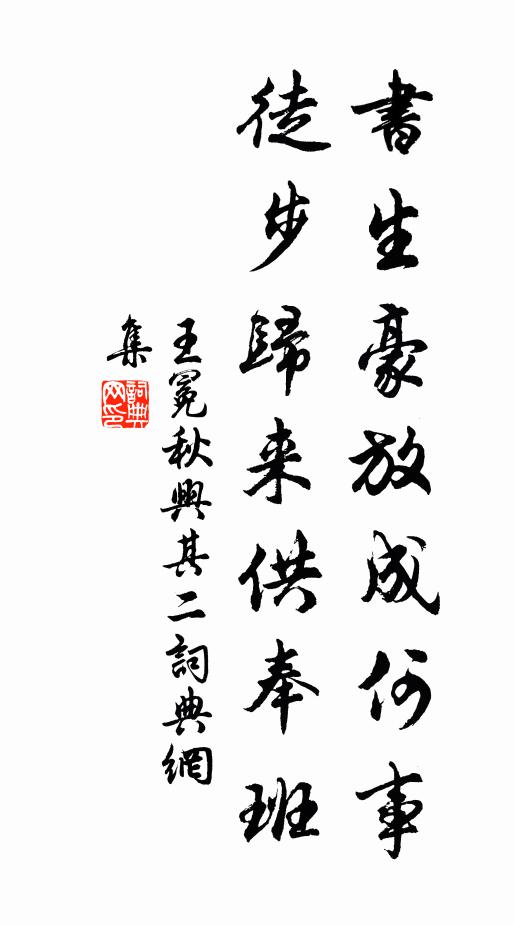 書生豪放成何事
徒步歸来供奉班
王冕秋興其二詞典網
集
詞典網印